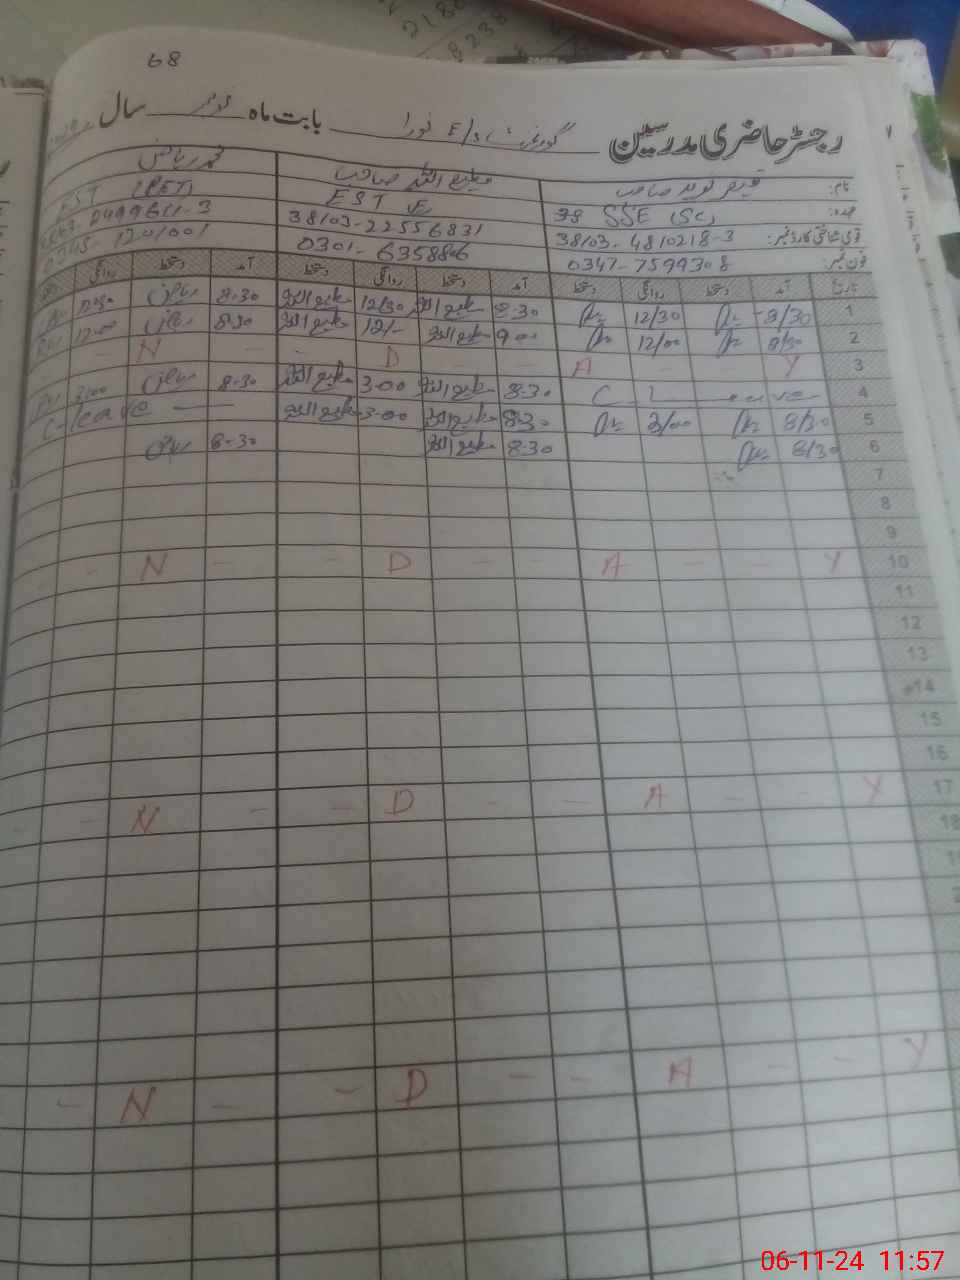 68
رجسٹر حاضری مدرسین گورنمنٹ E/S نورا بابت ماہ نومبر سال
نام: قیصر نوید صاحب مطیع اللہ صاحب محمد ریاض
عہدہ: SSE (SC) EST EST (PET)
قومی شناختی کارڈ نمبر: 38103-4810218-3 38103-22556831 0499611-3
فون نمبر: 0347-7599308 0301-6358806 0345-1201001
تاریخ آمد دستخط روانگی دستخط آمد دستخط روانگی دستخط آمد دستخط روانگی
1 8/30 12/30 8:30 مطیع اللہ 12/30 مطیع اللہ 8:30 ریاض 12:30
2 8/30 12/00 9:00 مطیع اللہ 12/- مطیع اللہ 8:30 ریاض 12:00
3 Y - - A - - D - - N -
4 C Leave 8:30 مطیع اللہ 3:00 مطیع اللہ 8:30 ریاض 3:00
5 8/30 3/00 8:30 مطیع اللہ 3:00 مطیع اللہ C-leave
6 8/30 8:30 مطیع اللہ 8:30 ریاض
7
8
9
10 Y - - A - - D - - N - -
11
12
13
14
15
16
17 Y - - A - - D - - N - -
18
Y - - A - - D - - N -
06-11-24 11:57